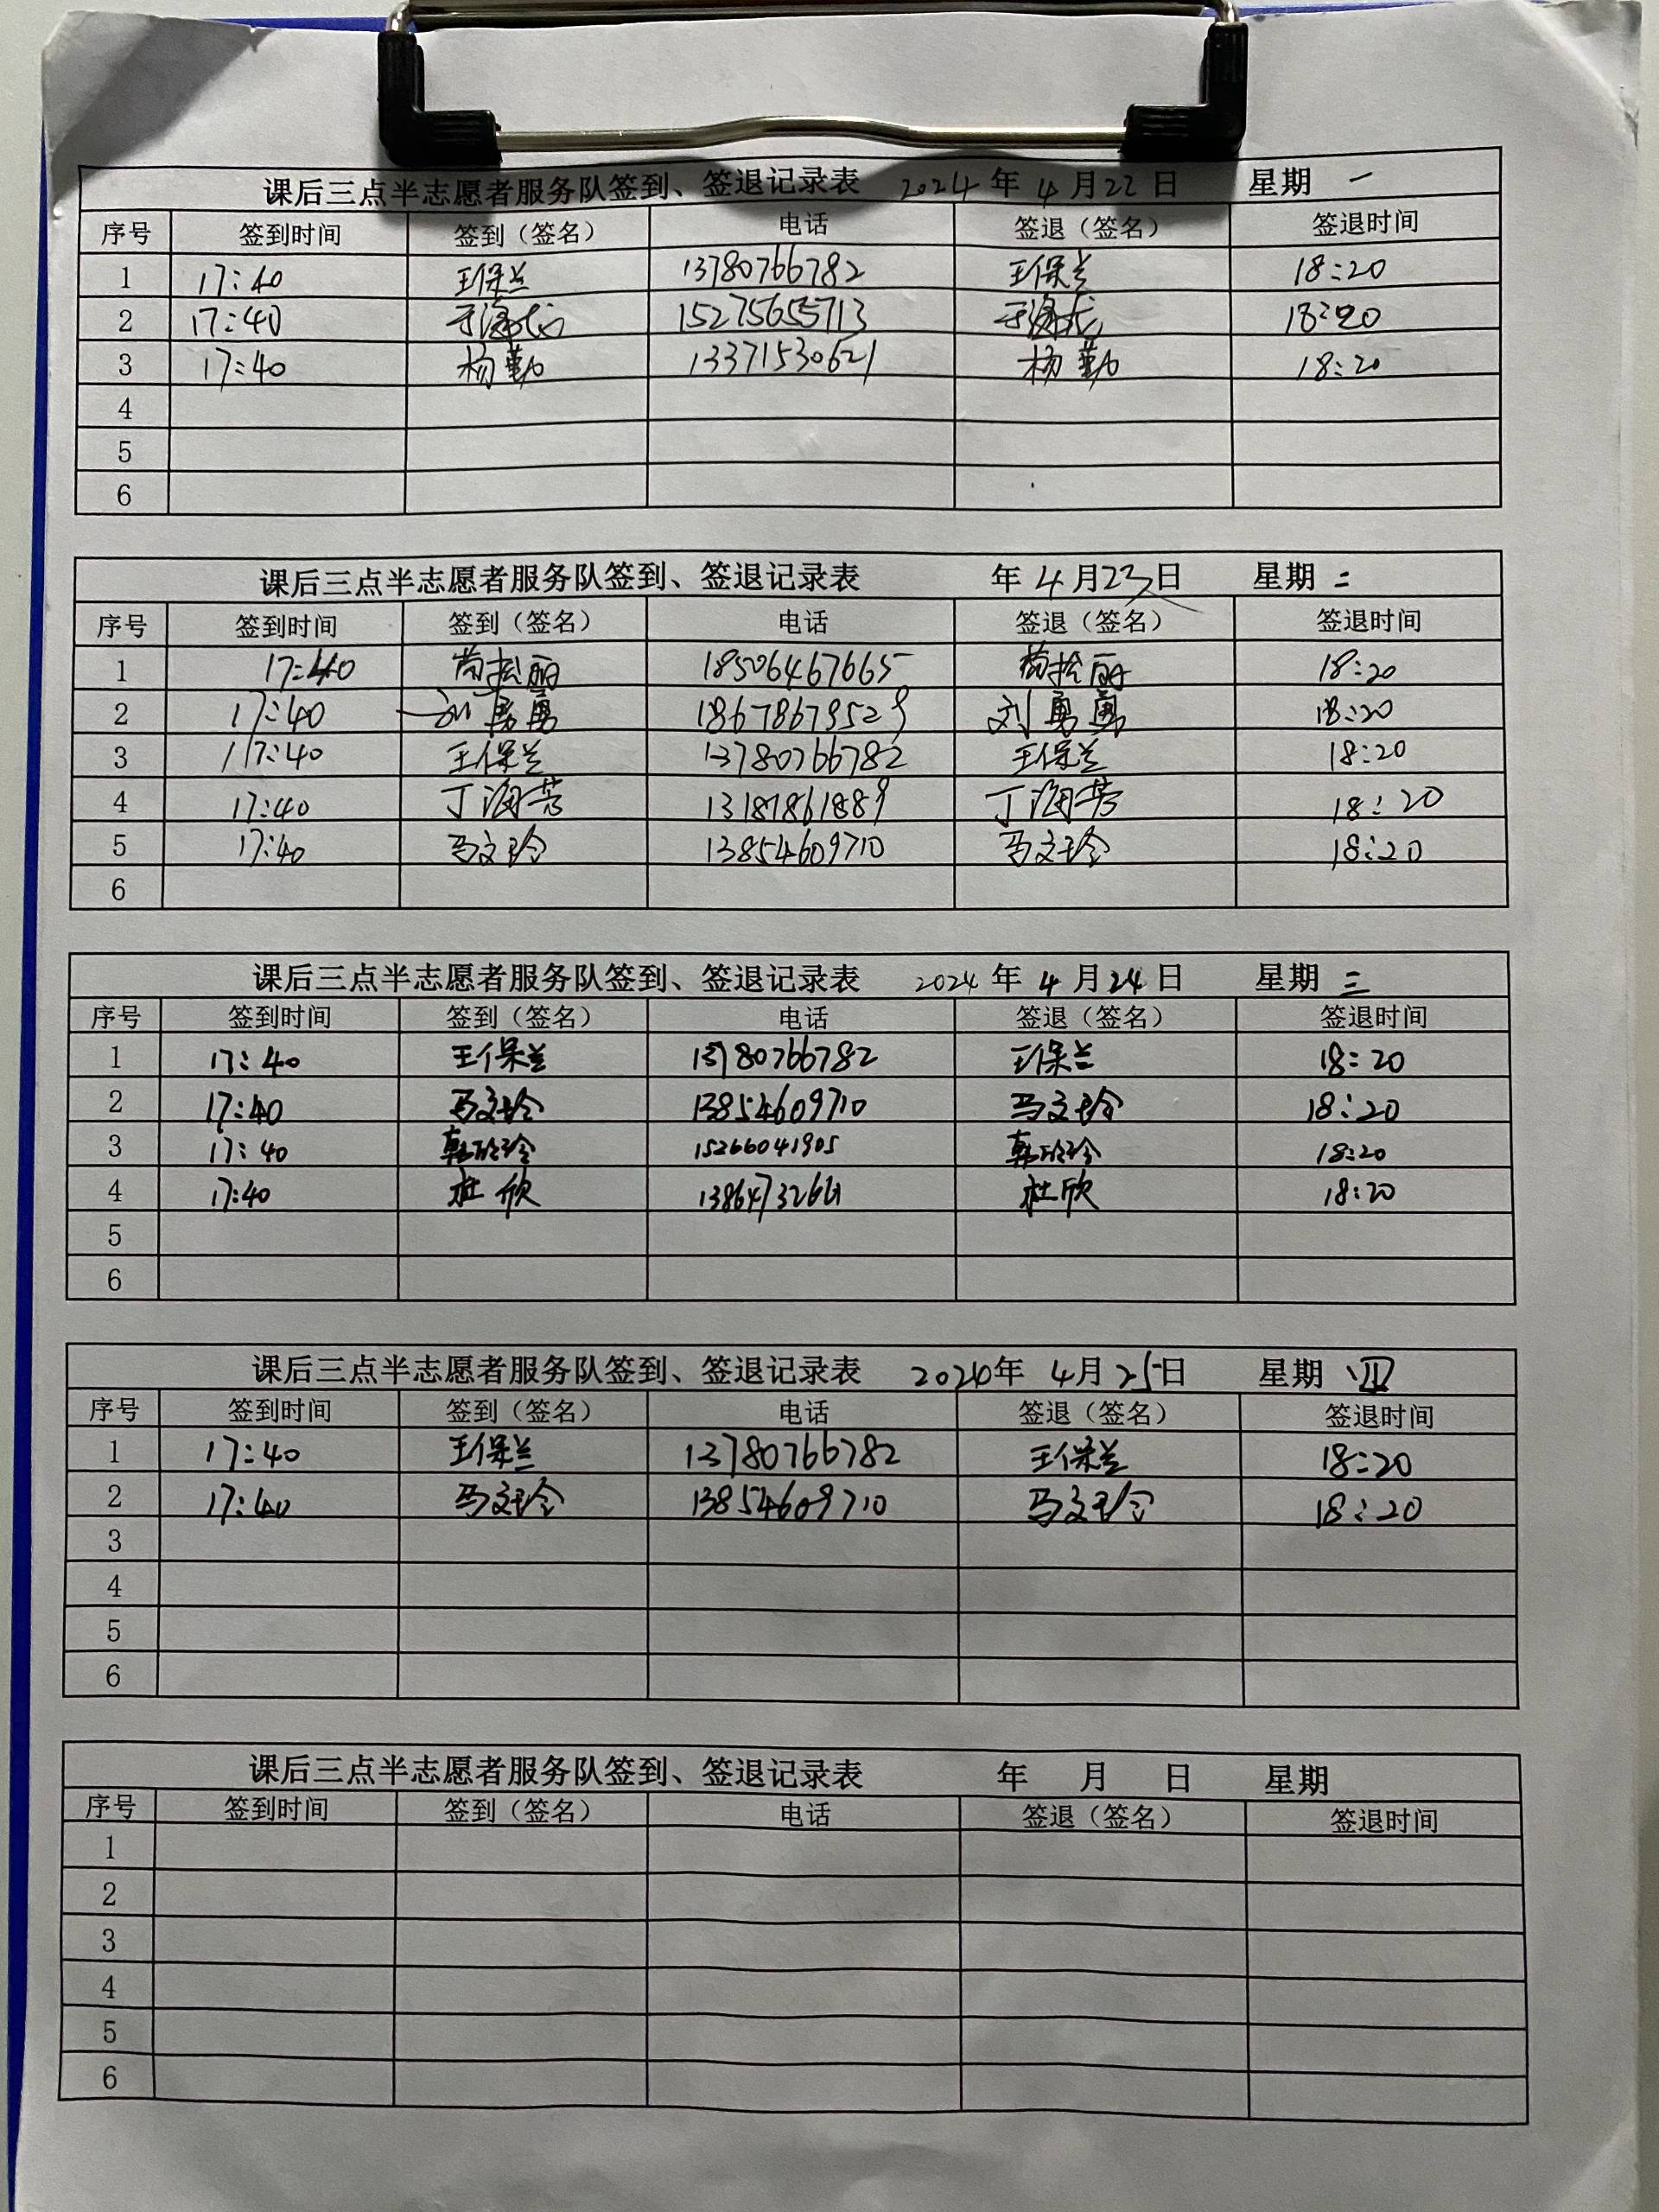 课后三点半志愿者服务队签到、签退记录表 2024 年 4 月 22 日 星期 一
序号 签到时间 签到（签名） 电话 签退（签名） 签退时间
1 17:40 王保兰 13780766782 王保兰 18:20
2 17:40 15275655713 18:20
3 17:40 杨勤 13371530621 杨勤 18:20
4
5
6
课后三点半志愿者服务队签到、签退记录表 年 4 月 23 日 星期 二
序号 签到时间 签到（签名） 电话 签退（签名） 签退时间
1 17:40 18506467665 18:20
2 17:40 刘勇勇 18678679529 刘勇勇 18:20
3 17:40 王保兰 13780766782 王保兰 18:20
4 17:40 丁海芳 13181861889 丁海芳 18:20
5 17:40 马文玲 13854609710 马文玲 18:20
6
课后三点半志愿者服务队签到、签退记录表 2024 年 4 月 24 日 星期 三
序号 签到时间 签到（签名） 电话 签退（签名） 签退时间
1 17:40 王保兰 13780766782 王保兰 18:20
2 17:40 马文玲 13854609710 马文玲 18:20
3 17:40 15266041905 18:20
4 17:40 杜欣 杜欣 18:20
5
6
课后三点半志愿者服务队签到、签退记录表 2024年 4月 25日 星期 四
序号 签到时间 签到（签名） 电话 签退（签名） 签退时间
1 17:40 王保兰 13780766782 王保兰 18:20
2 17:40 马文玲 13854609710 马文玲 18:20
3
4
5
6
课后三点半志愿者服务队签到、签退记录表 年 月 日 星期
序号 签到时间 签到（签名） 电话 签退（签名） 签退时间
1
2
3
4
5
6